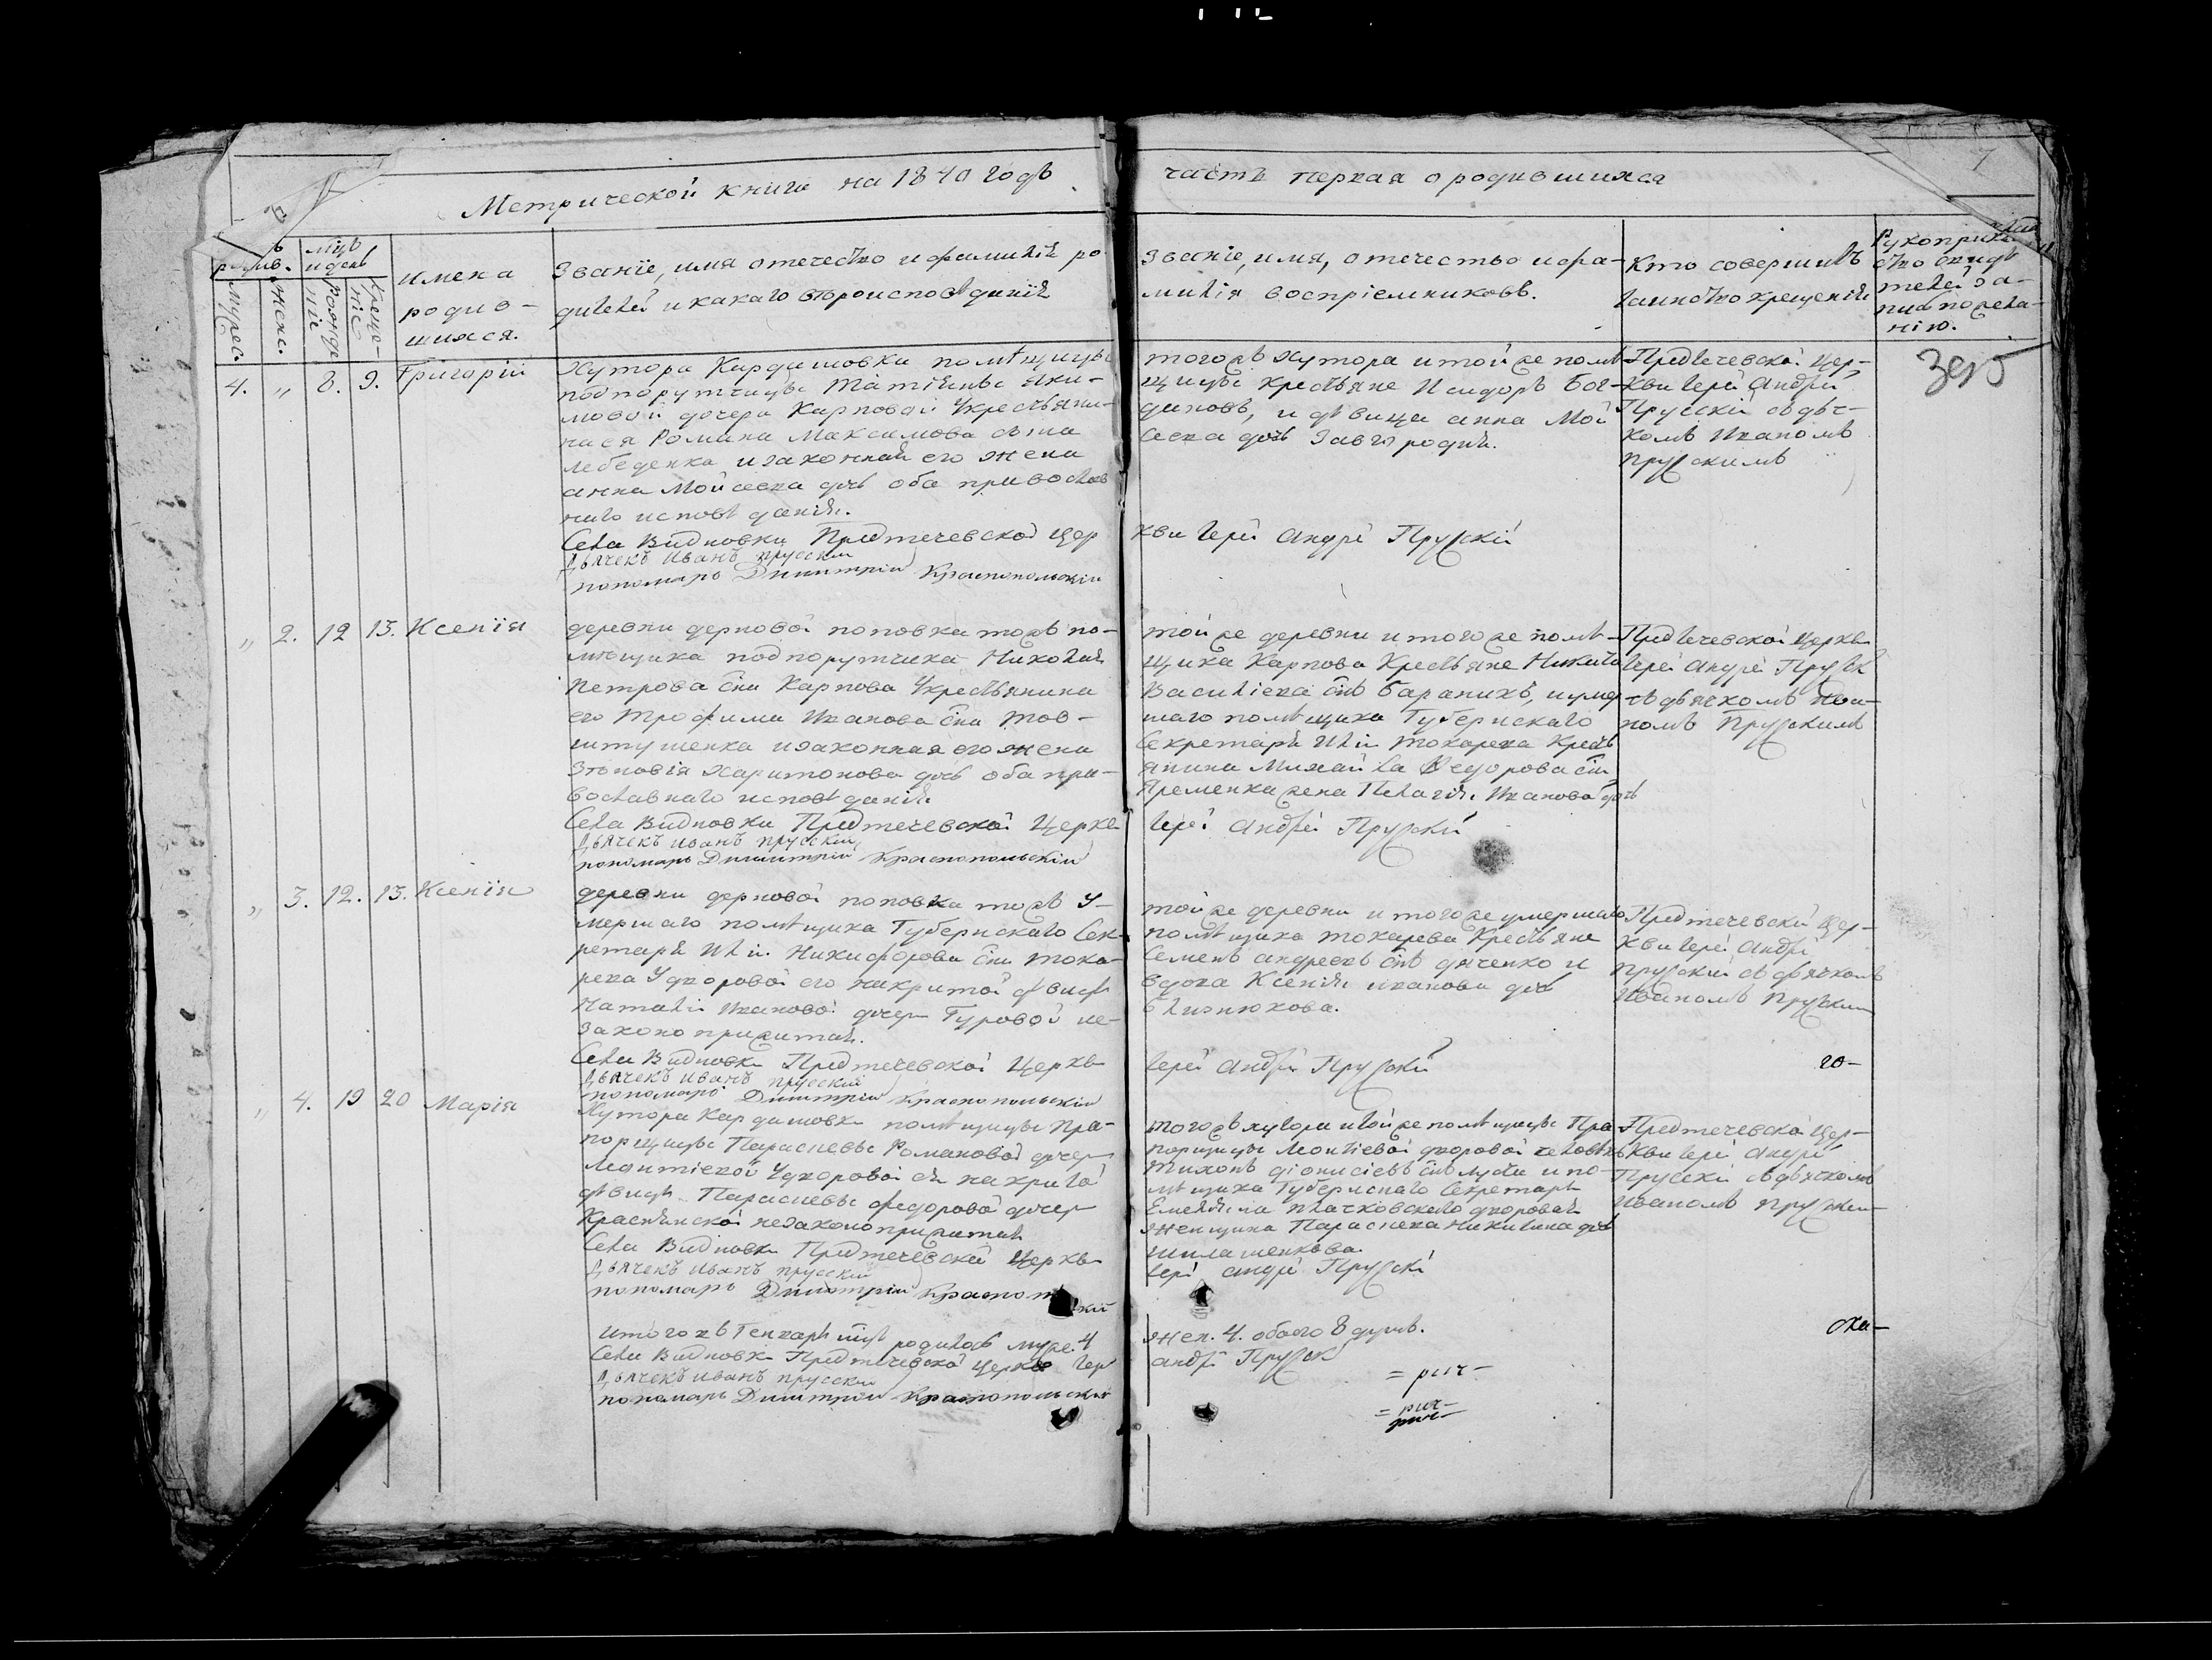 Метрической книги на 1840 годъ
часть первая о родившихся
7
мцъ и день
Имена родив-
шихся.
Званіе, имя отечество и фамилія ро-
дителей и какаго вѣроисповѣданія
Званіе, имя, отечество и фа-
милія воспріемниковъ.
Кто совершилъ
таинство крещенія
Рукоприкла
ство свидѣ
телей за-
писи по жела-
нію.
Мужес.
Женс.
Рожде
ніе
Креще-
ніе
4. „ 8. 9. Григорій
Хутора Кардашовки помѣщицы
подпорутчицы Татіяны Яки-
мовой дочери Карповой Укрестьяни-
на ея Романа Максимова сына
лебеденка и законная его жена
анна Мойсеева дочь оба православ
наго исповѣданія.
Села Видновки Предтечевской Цер
Дьячекъ Иванъ прусскій
пономарь Димитрій Краснопольскій
тогожъ хутора и той же помѣ-
щицы крестьяне Исидоръ Бог-
дановъ, и дѣвица анна Мой
сеева дочь Завгородня.
кви Іерей Андрей Прусскій
Предтечевской Цер-
кви Іерей Андрей
Прусскій съ дьяч-
комъ Иваномъ
прусскимъ
„ 2. 12 13. Ксенія
деревни дерновой поповка тожъ по-
мѣщика подпорутчика Николая
Петрова сна Карпова Укрестьянина
его Трофима Иванова сна Тов-
штушенка и законная его жена
Зѣновія Харитонова дочь оба пра-
вославнаго исповѣданія
Села Видновки Предтечевской Церкви
Дьячекъ Иванъ прусскій
пономарь Димитрій Краснопольскій
той же деревни и того же помѣ-
щика Карпова Крестьяне Никита
Василіева снъ бараникъ, и умер-
шаго помѣщика Губернскаго
Секретаря Иліи Токарева Кресть
янина Михайла Федорова сна
Яременка жена Пелагія Иванова дочь
Іерей Андрей Прусскій
Предтечевской Церкви
Іерей Андрей Прусскі
съ дьячкомъ Ива-
номъ Прусскимъ
„ 3. 12. 13. Ксенія
деревни дерновой поповка тожъ У-
мершаго помѣщика Губернскаго Сек-
ретаря Иліи Никифорова сна Тока-
рева Удворовой его накритой дѣвицы
Наталіи Ивановой дочери Гуровой не-
законо прижитая.
Села Видновки Предтечевской Церкви
Дьячекъ Иванъ прусскій
пономарь Димитрій Краснопольскій
той же деревни и того же умершаго
помѣщика Токарева Крестьяне
Семенъ андреевъ снъ дяченко и
вдова Ксенія иванова дочь
близнюкова.
Іерей Андрей Прусскій
Предтечевской Цер-
кви Іерей Андрей
прусскій съ дьячкомъ
Иваномъ Прусским
го-
„ 4. 19 20 Марія
Хутора Кардашовки помѣщицы Пра-
порщицы Парасковьи Романовой дочери
Леонтіевой Удворовой ея накритой
дѣвицы Парасковьи Федоровой дочери
Краснянской незаконоприжитая
Села Видновки Предтечевской Церкви
Дьячекъ Иванъ прусскій
пономарь Димитрій Красноп
тогожъ хутора и той же помѣщицы Пра
порщицы Леонтіевой дворовой человѣкъ
Тихонъ діонисіевъ снъ и по-
мѣщика Губернскаго Секретаря
дворовая
женщина Параскева Никитина дочь

Іерей андрей Прусскі
Предтечевской Цер-
кви Іерей Андрей
Прусскі съ дьячкомъ
Иваномъ Прусским
Итого въ Генварѣ мцѣ родилось муже. 4
Села Видновки Предтечевской Церкви Іер
Дьячекъ Иванъ прусскій
пономарь Димитрій Краснопольскій
жен. 4. обоего 8 душъ.
андрей Прусскі